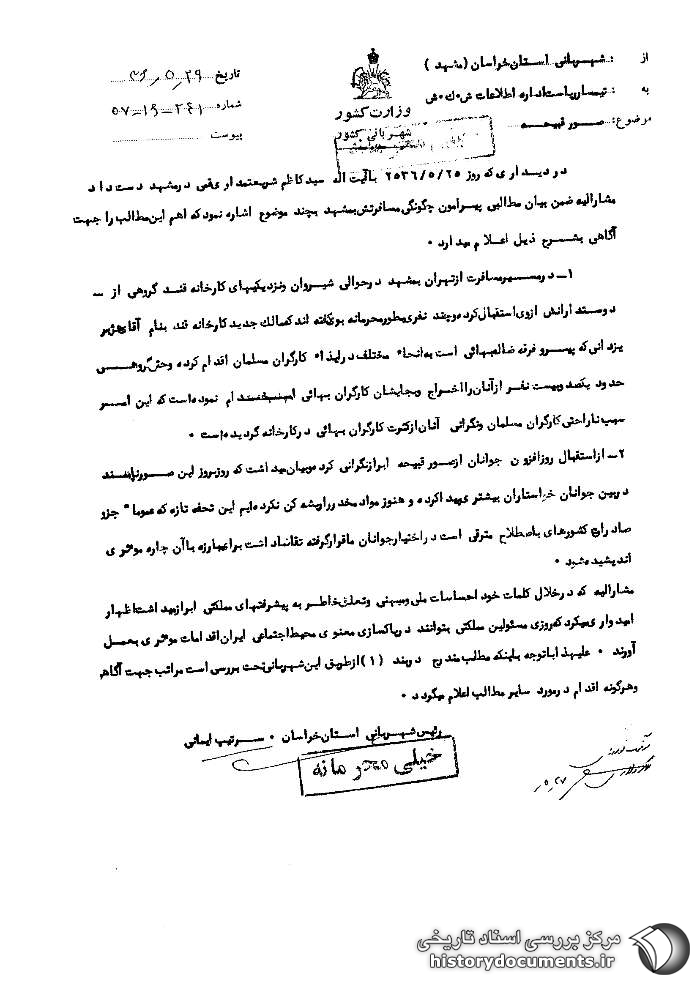 از : شهربانی استان خراسان (مشهد)
به : تیمسار ریاست اداره اطلاعات ش.ک.ش
موضوع: صور قبیحه
وزارت کشور
شهربانی کشور
تاریخ ۳۶٫۵٫۲۹
شماره ۲۴۱-۱۶-۵۷
پیوست
در دیداری که روز ۲۵۳۶/۵/۲۵ با آیت اله سید کاظم شریعتمداری قمی در مشهد دست داد
مشارالیه ضمن بیان مطالبی پیرامون چگونگی مسافرتش بمشهد بچند موضوع اشاره نمود که اهم این مطالب را جهت
آگاهی بشرح ذیل اعلام میدارد .
۱- در مسیر مسافرت از تهران بمشهد در حوالی شیروان و نزدیکیهای کارخانه قند گروهی از
دوستدارانش از وی استقبال کرده و چند نفری بطور محرمانه بوی گفته اند که مالک جدید کارخانه قند بنام آقای هژبر
یزدانی که پیرو فرقه ضاله بهائی است به انحاء مختلف در ایذاء کارگران مسلمان اقدام کرده و حتی گروهی
حدود یکصد و بیست نفر از آنان را اخراج و بجایشان کارگران بهائی استخدام نموده است که این امر
سبب ناراحتی کارگران مسلمان و نگرانی آنان از کثرت کارگران بهائی در کارخانه گردیده است .
۲- از استقبال روزافزون جوانان از صور قبیحه ابراز نگرانی کرده و بیان میداشت که روزبروز این صور ناپسند
در بین جوانان خواستاران بیشتری پیدا کرده و هنوز مواد مخدر را ریشه کن نکرده ایم این تحفه تازه که عموما" جزو
صادرات کشورهای باصطلاح مترقی است در اختیار جوانان ما قرار گرفته تقاضا داشت برای مبارزه با آن چاره موثری
اندیشیده شود .
مشارالیه که در خلال کلمات خود احساسات ملی و میهنی و تعلق خاطر به پیشرفتهای مملکتی ابراز میداشت اظهار
امیدواری میکرد که روزی مسئولین مملکتی بتوانند در پاکسازی معنوی محیط اجتماعی ایران اقدامات موثری بعمل
آورند . علیهذا با توجه باینکه مطلب مندرج در بند (۱) از طریق این شهربانی تحت بررسی است مراتب جهت آگاهی
و هرگونه اقدام در مورد سایر مطالب اعلام میگردد .
رئیس شهربانی استان خراسان . سرتیپ ایمانی
خیلی محرمانه
۵٫۲۷
مرکز بررسی اسناد تاریخی
historydocuments.ir